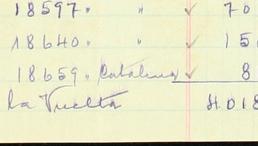 18597 " " ✓ 70
18640 " " ✓ 15
18659 " Catalina ✓ 8
la Vuelta 4018